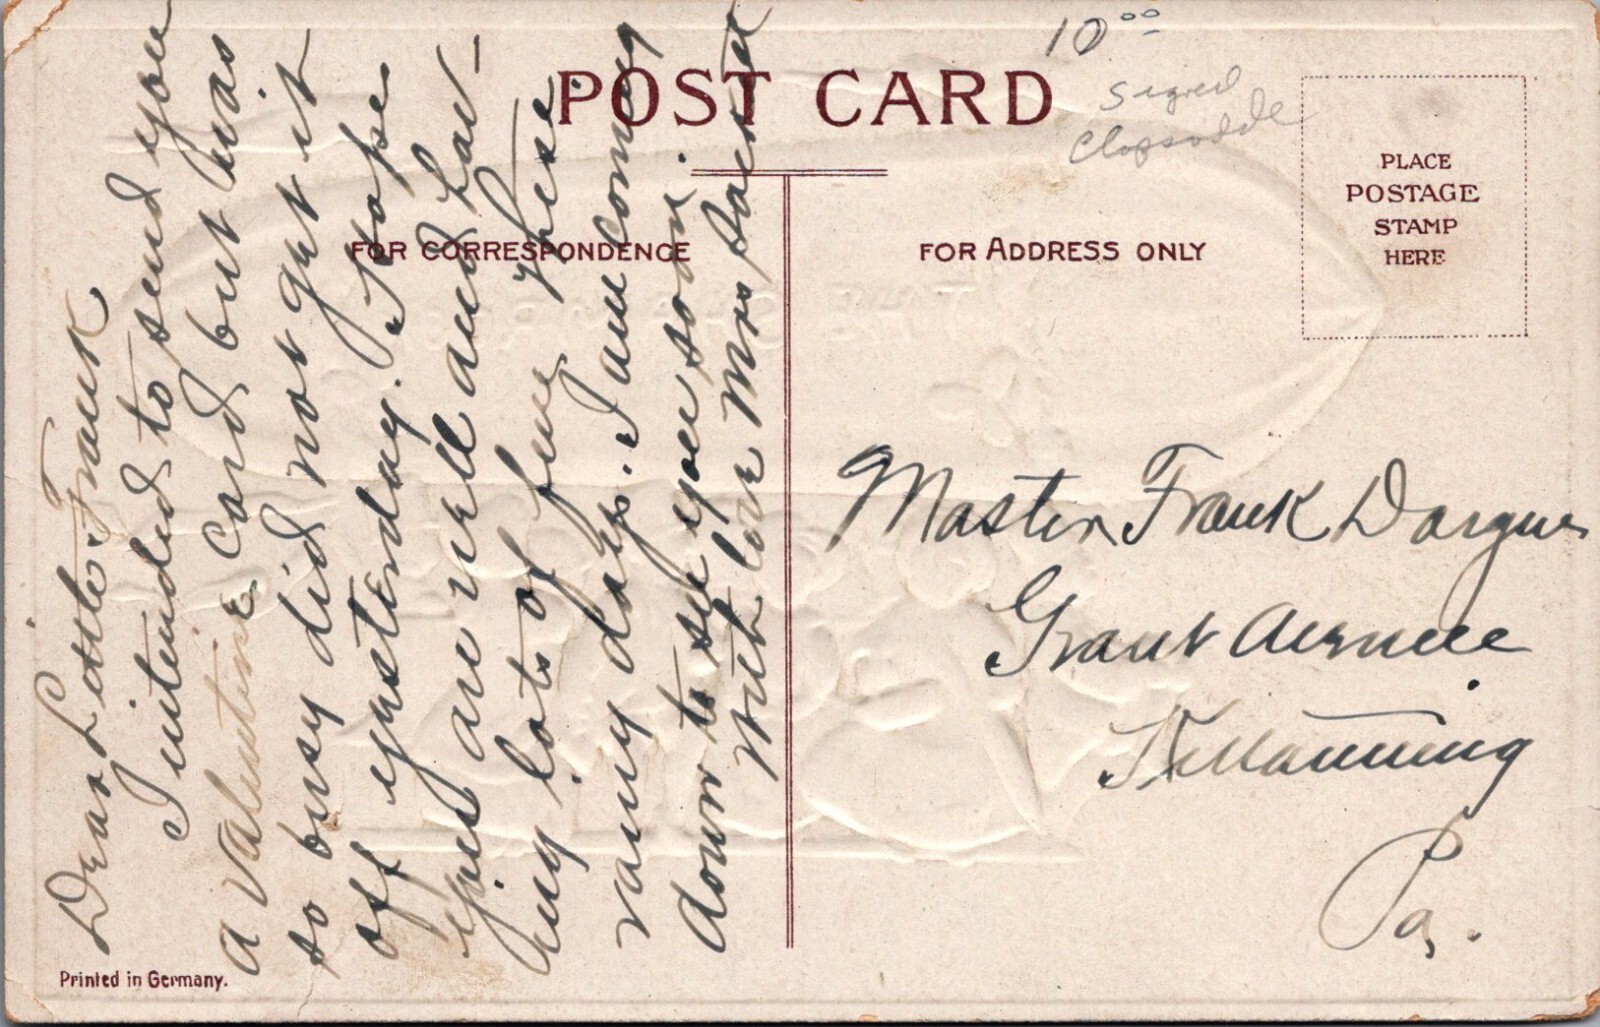 10⁰⁰
Signed
Clapsaddle
POST CARD
FOR CORRESPONDENCE
FOR ADDRESS ONLY
PLACE
POSTAGE
STAMP
HERE
Dear Little Frank
I intended to send you
a Valentine Card but was
so busy did not get it
off yesterday. I hope
you are well and hav-
ing lots of fun these
rainy days. I am coming
down to see you soon.
With love Mrs
Master Frank
Grant Avenue
Kittanning
Pa.
Printed in Germany.